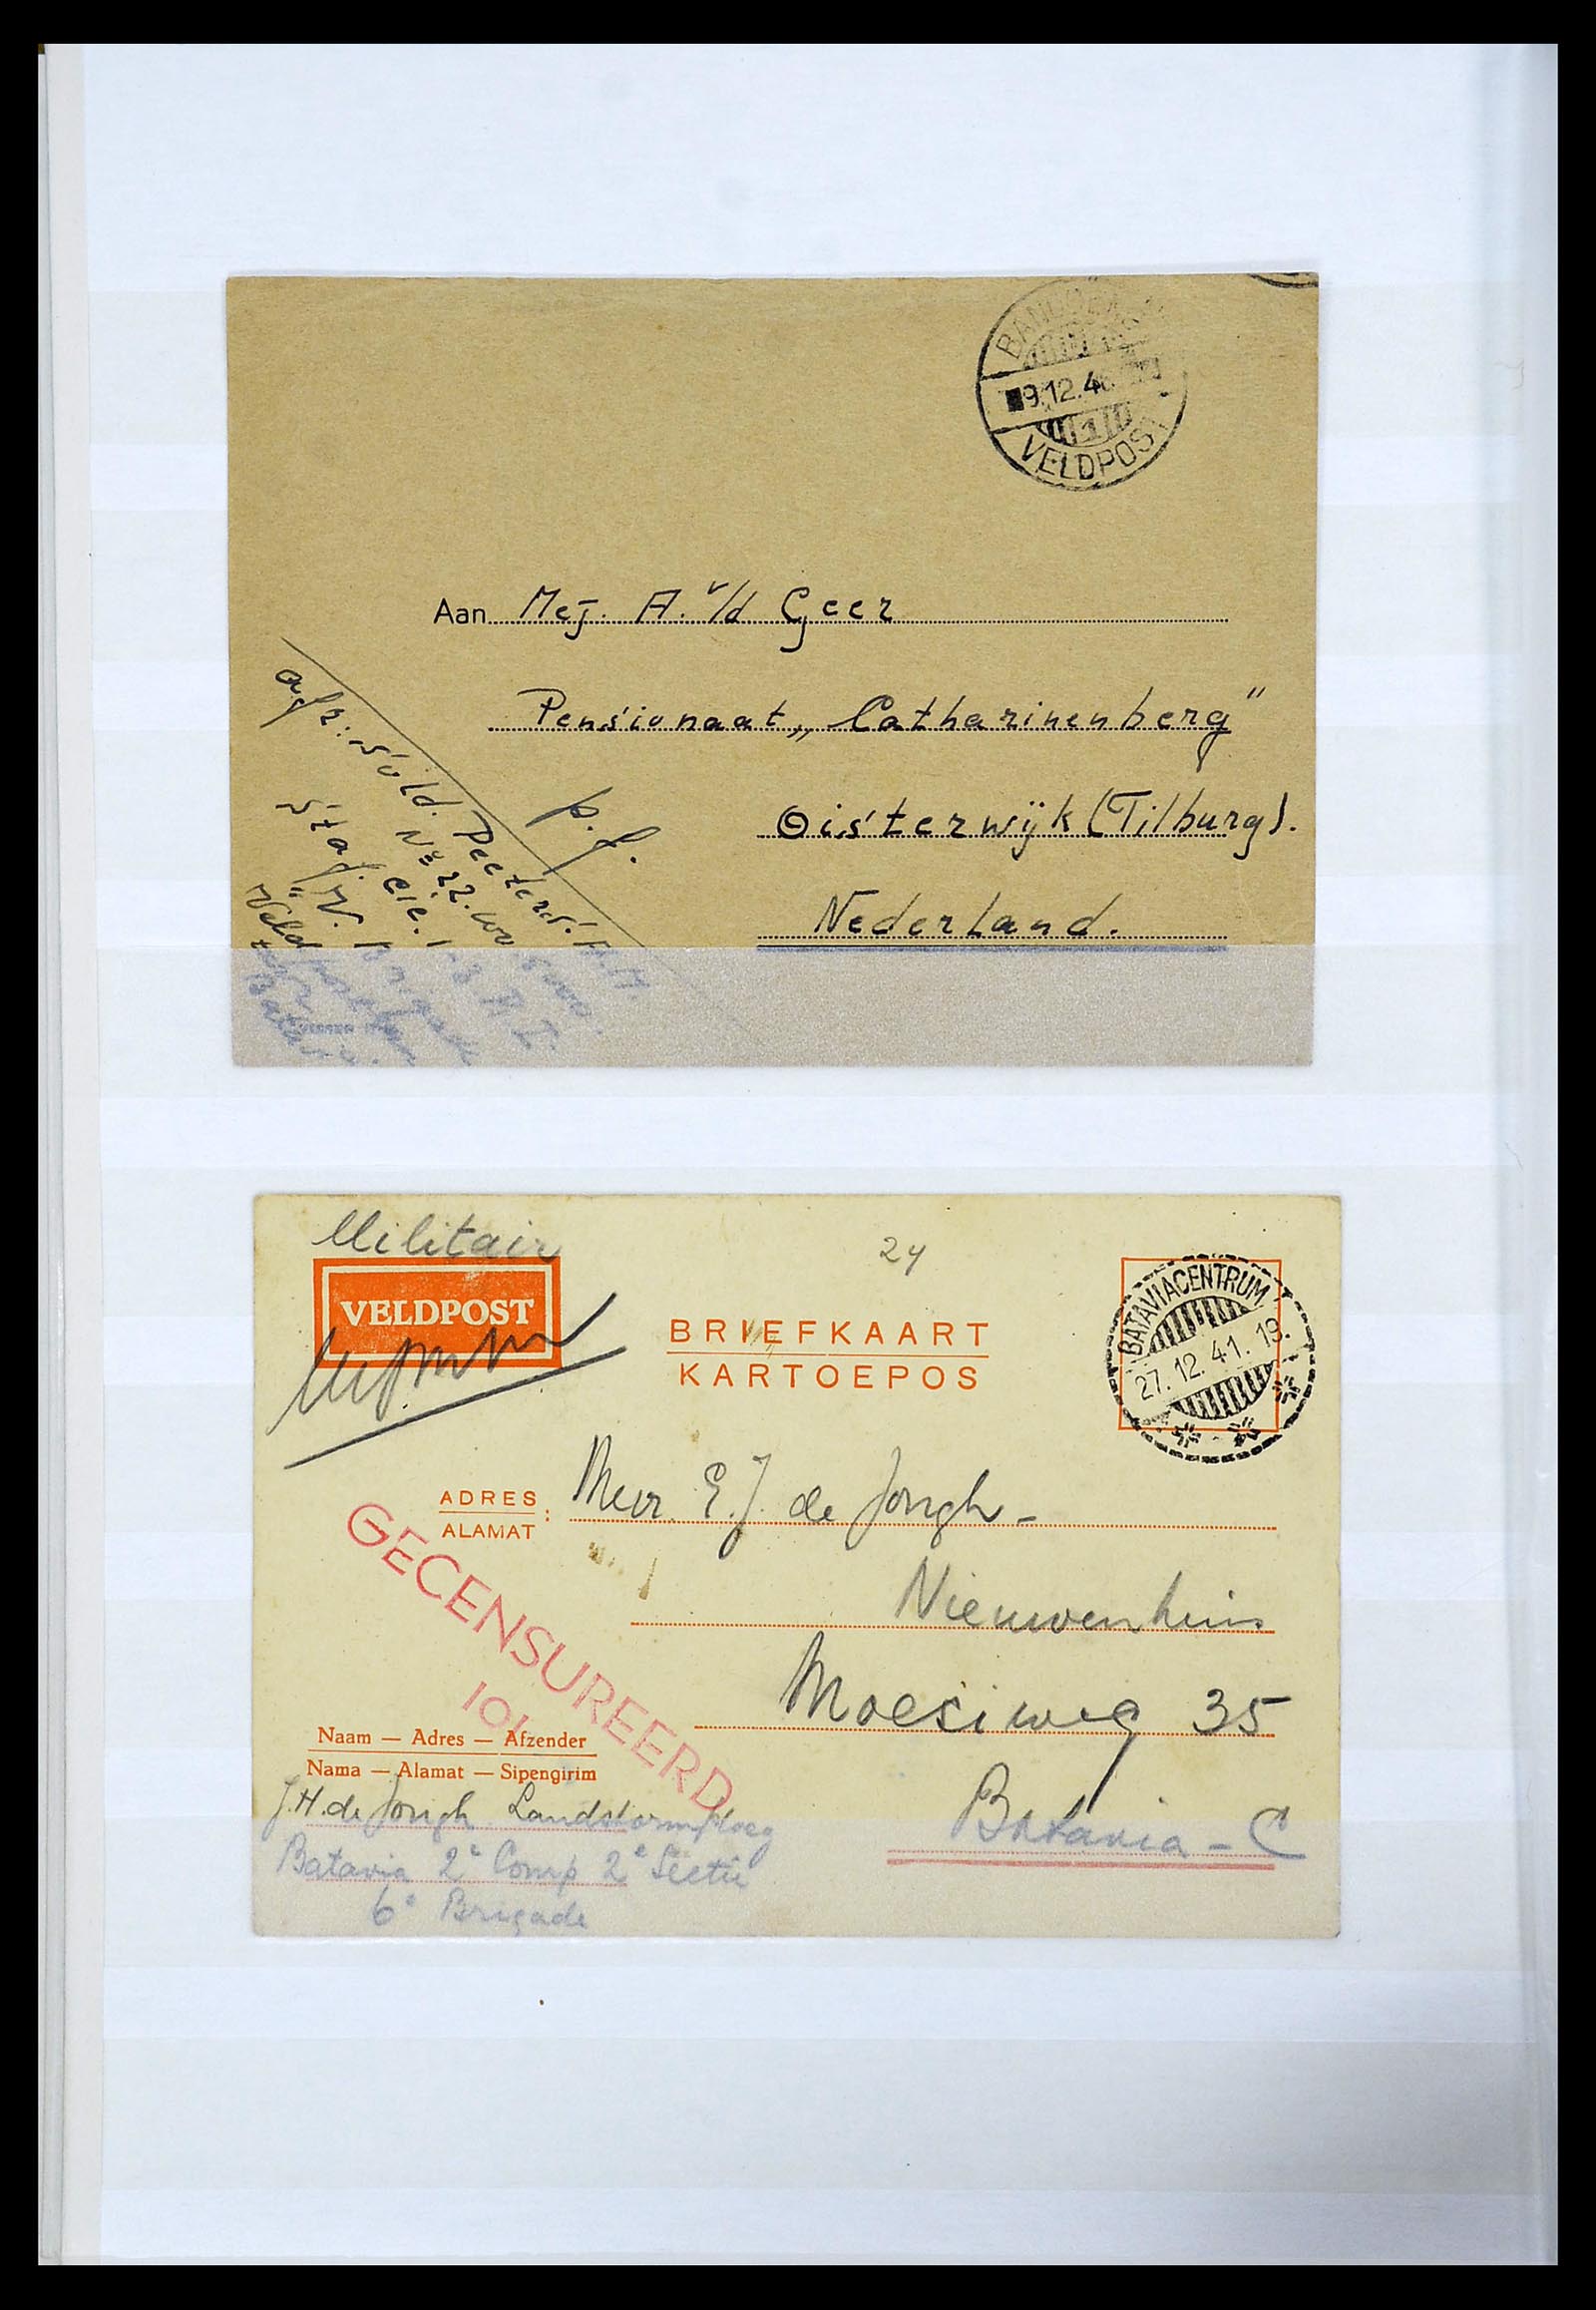 VELDPOST
Aan Mej. A. v/d Geer
Pensionaat „Catharinenberg”
Oisterwijk (Tilburg).
Nederland.
p.f.
afz: Sold. Peeters. A.M.
Staf. Cie. 1-3 R.I.
"W." Brigade
Veldpost
Batavia.
Militair
VELDPOST
24
BRIEFKAART
KARTOEPOS
BATAVIACENTRUM
27.12.41.19.
ADRES :
ALAMAT
Mevr. E.J. de Jongh-
Nieuwenhuis
Moesiweg 35
Batavia - C
GECENSUREERD
Naam — Adres — Afzender
Nama — Alamat — Sipengirim
J.H. de Jongh Landstormploeg
Batavia 2e Comp 2e Sectie
6e Brigade